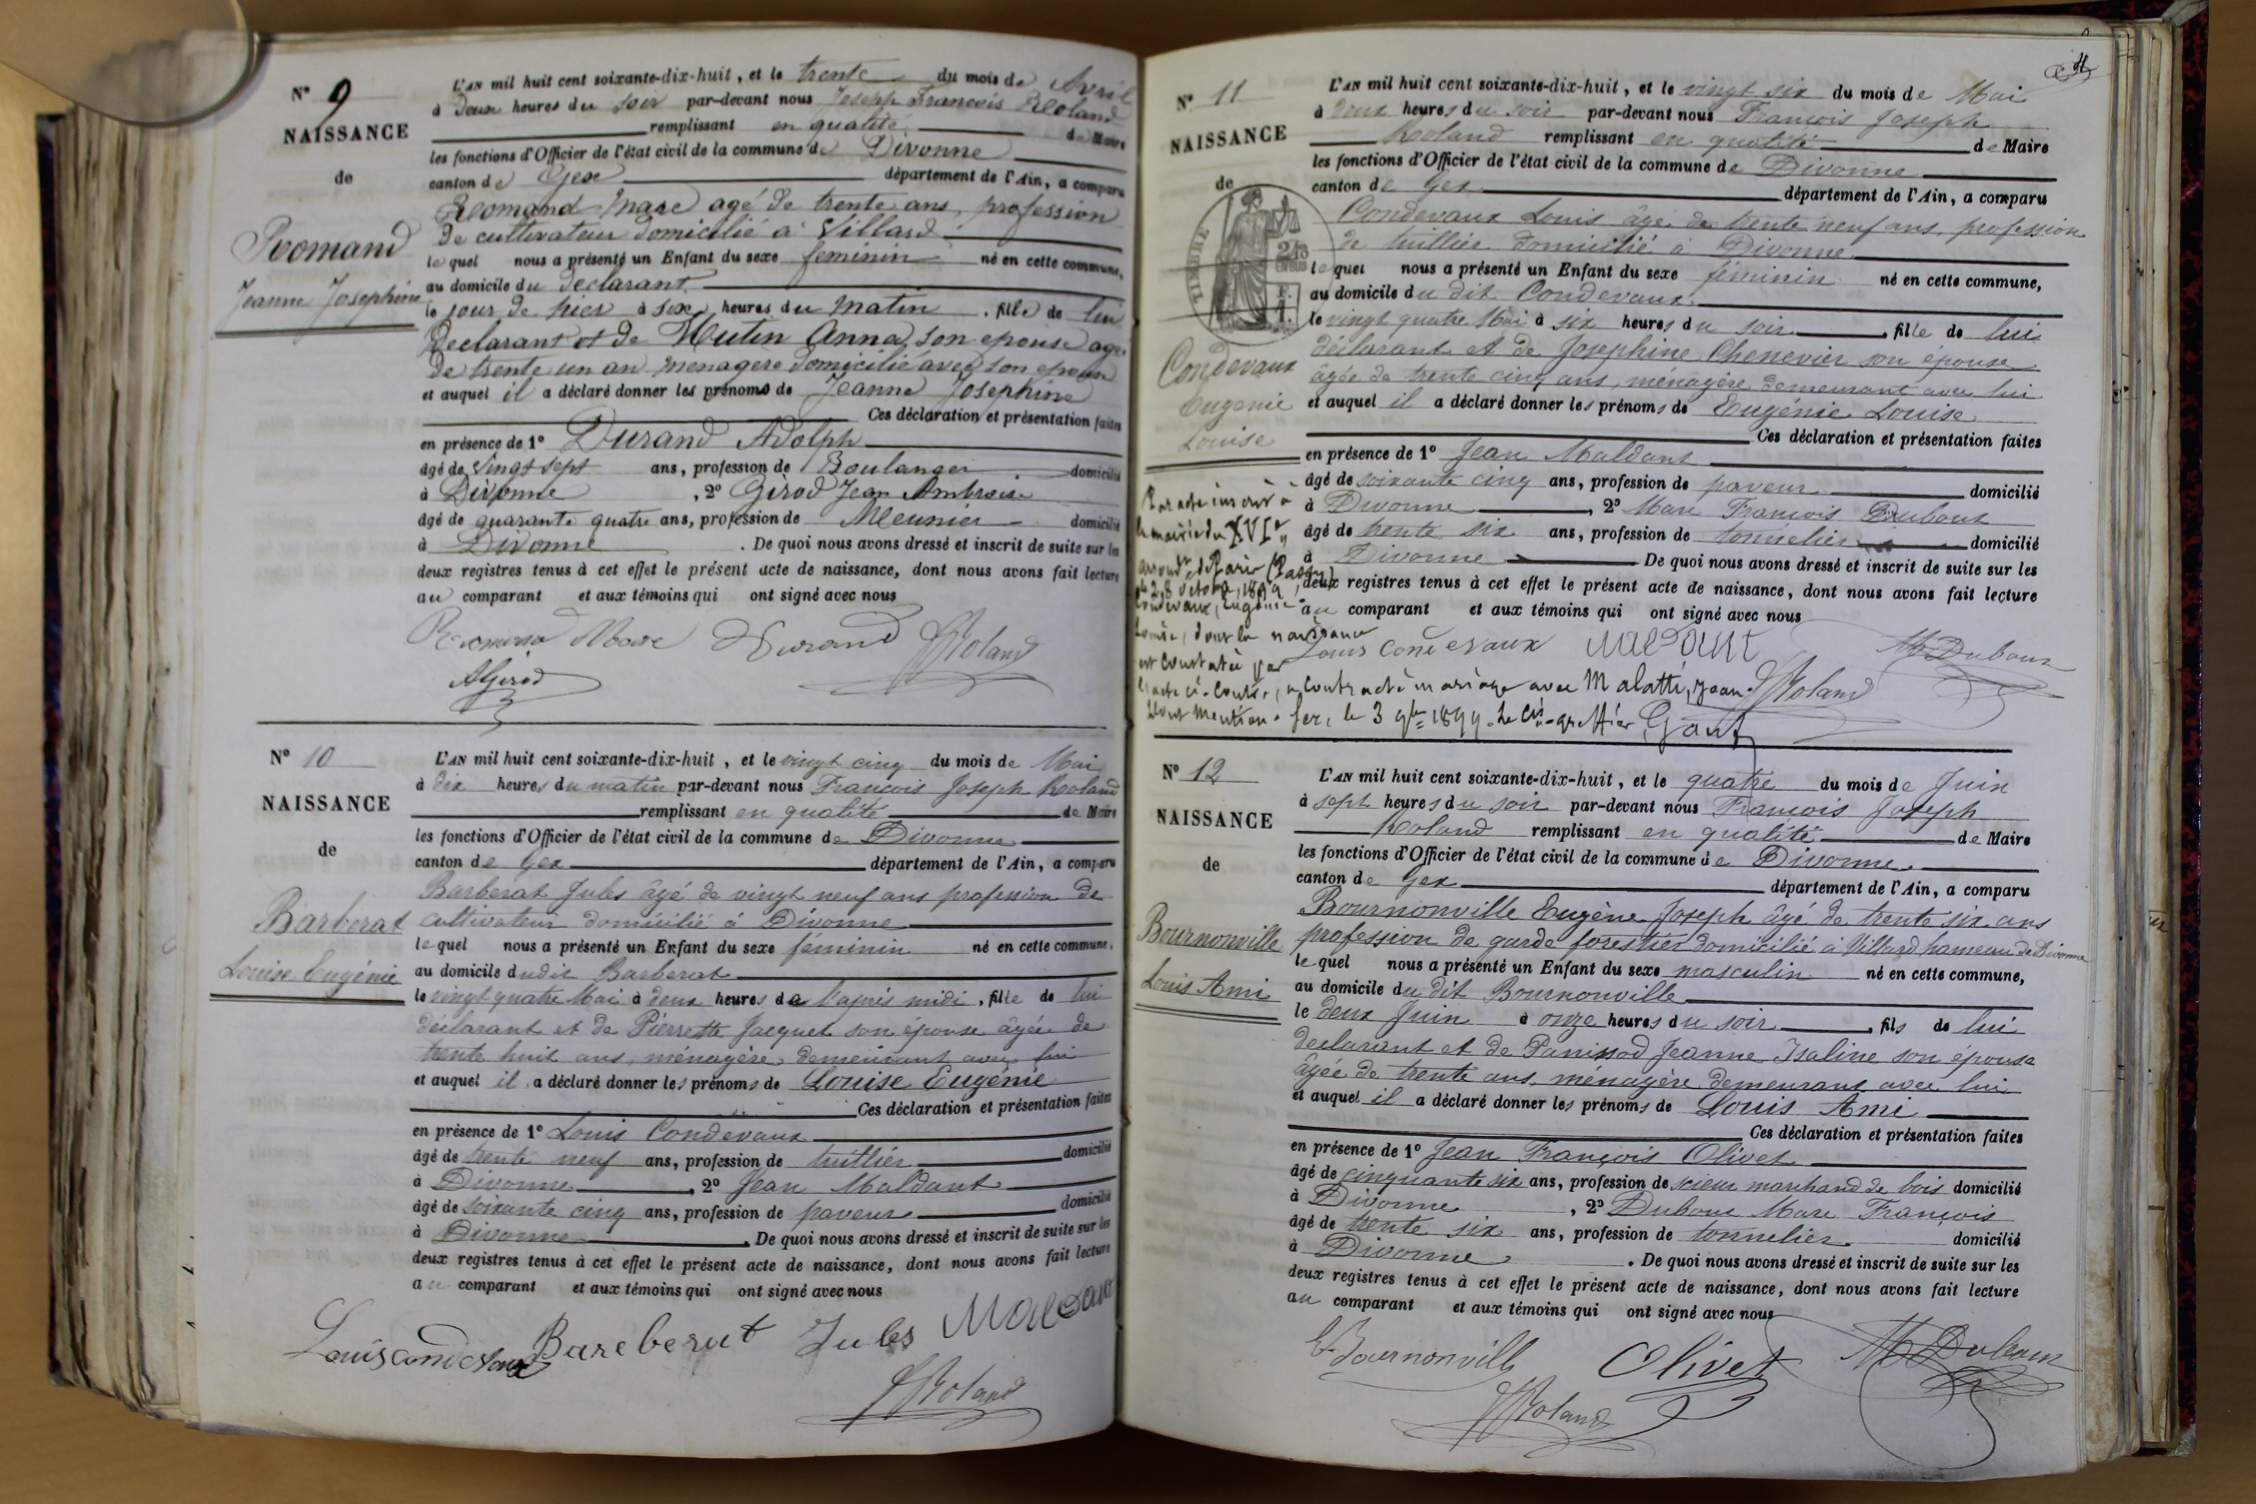 N° 9
NAISSANCE
de
Romand
Jeanne Josephine
L'AN mil huit cent soixante-dix-huit, et le trente du mois de Avril
à Deux heures du soir par-devant nous Joseph François Roland
remplissant en qualité de Maire
les fonctions d'Officier de l'état civil de la commune de Divonne
canton de Gex département de l'Ain, a comparu
Romand Marc agé de trente ans, profession
de cultivateur domicilié à Villard
lequel nous a présenté un Enfant du sexe feminin né en cette commune,
au domicile du declarant
le jour de hier à six heures du matin, fille de lui
Declarant et de Mutin Anna, son epouse agée
de trente un an menagere domicilié avec son epoux
et auquel il a déclaré donner les prénoms de Jeanne Josephine
Ces déclaration et présentation faites
en présence de 1° Durand Adolph
âgé de Vingt sept ans, profession de Boulanger domicilié
à Divonne, 2° Girod Jean Ambroise
âgé de quarante quatre ans, profession de Meunier domicilié
à Divonne. De quoi nous avons dressé et inscrit de suite sur les
deux registres tenus à cet effet le présent acte de naissance, dont nous avons fait lecture
au comparant et aux témoins qui ont signé avec nous
Romand Marc Durand Roland
A Girod
N° 10
NAISSANCE
de
Barberat
Louise Eugénie
L'AN mil huit cent soixante-dix-huit, et le vingt cinq du mois de Mai
à dix heures du matin par-devant nous François Joseph Roland
remplissant en qualité de Maire
les fonctions d'Officier de l'état civil de la commune de Divonne
canton de Gex département de l'Ain, a comparu
Barberat Jules âgé de vingt neuf ans profession de
cultivateur domicilié à Divonne
lequel nous a présenté un Enfant du sexe féminin né en cette commune,
au domicile dudit Barberat
le vingt quatre Mai à deux heures de l'après midi, fille de lui
déclarant et de Pierrette Jacquet son épouse âgée de
trente huit ans, ménagère, demeurant avec lui
et auquel il a déclaré donner les prénoms de Louise Eugénie
Ces déclaration et présentation faites
en présence de 1° Louis Condevaux
âgé de trente neuf ans, profession de tuillier domicilié
à Divonne, 2° Jean Maldant
âgé de soixante cinq ans, profession de paveur domicilié
à Divonne. De quoi nous avons dressé et inscrit de suite sur les
deux registres tenus à cet effet le présent acte de naissance, dont nous avons fait lecture
au comparant et aux témoins qui ont signé avec nous
Louis condevaux Bareberat Jules Maldant
Roland
N° 11
NAISSANCE
de
TIMBRE
Condevaux
Eugenie
Louise
L'AN mil huit cent soixante-dix-huit, et le vingt six du mois de Mai
à deux heures du soir par-devant nous François Joseph
Roland remplissant en qualité de Maire
les fonctions d'Officier de l'état civil de la commune de Divonne
canton de Gex département de l'Ain, a comparu
Condevaux Louis âgé de trente neuf ans, profession
de tuillier domicilié à Divonne
lequel nous a présenté un Enfant du sexe féminin né en cette commune,
au domicile du dit Condevaux
le vingt quatre Mai à six heures du soir, fille de lui
déclarant et de Josephine Chenevier son épouse
âgée de trente cinq ans, ménagère demeurant avec lui
et auquel il a déclaré donner les prénoms de Eugénie Louise
Ces déclaration et présentation faites
en présence de 1° Jean Maldant
âgé de soixante cinq ans, profession de paveur domicilié
à Divonne, 2° Marc François Dubout
âgé de trente six ans, profession de tonnelier domicilié
à Divonne De quoi nous avons dressé et inscrit de suite sur les
deux registres tenus à cet effet le présent acte de naissance, dont nous avons fait lecture
au comparant et aux témoins qui ont signé avec nous
Louis condevaux Maldant M Dubour
Roland
Par acte inscrit à
la mairie du XVIe
arrondt de Paris (Passy)
le 28 octobre 1899,
Condevaux, Eugénie
Louise, dont la naissance
est constatée par
l'acte ci-contre, a contracté mariage avec Malatti, Jean.
Dont mention. Gex, le 3 9bre 1899. Le Cis-greffier,
N° 12
NAISSANCE
de
Bournonville
Louis Ami
L'AN mil huit cent soixante-dix-huit, et le quatre du mois de Juin
à sept heures du soir par-devant nous François Joseph
Roland remplissant en qualité de Maire
les fonctions d'Officier de l'état civil de la commune de Divonne
canton de Gex département de l'Ain, a comparu
Bournonville Eugène Joseph âgé de trente six ans
profession de garde forestier domicilié à Villard hameau de Divonne
lequel nous a présenté un Enfant du sexe masculin né en cette commune,
au domicile du dit Bournonville
le deux Juin à onze heures du soir, fils de lui
declarant et de Panissod Jeanne Isaline son épouse
âgée de trente ans, ménagère demeurant avec lui
et auquel il a déclaré donner les prénoms de Louis Ami
Ces déclaration et présentation faites
en présence de 1° Jean François Olivet
âgé de cinquante six ans, profession de scieur marchand de bois domicilié
à Divonne, 2° Dubour Marc François
âgé de trente six ans, profession de tonnelier domicilié
à Divonne. De quoi nous avons dressé et inscrit de suite sur les
deux registres tenus à cet effet le présent acte de naissance, dont nous avons fait lecture
au comparant et aux témoins qui ont signé avec nous
E. Bournonville Olivet M Dubour
Roland